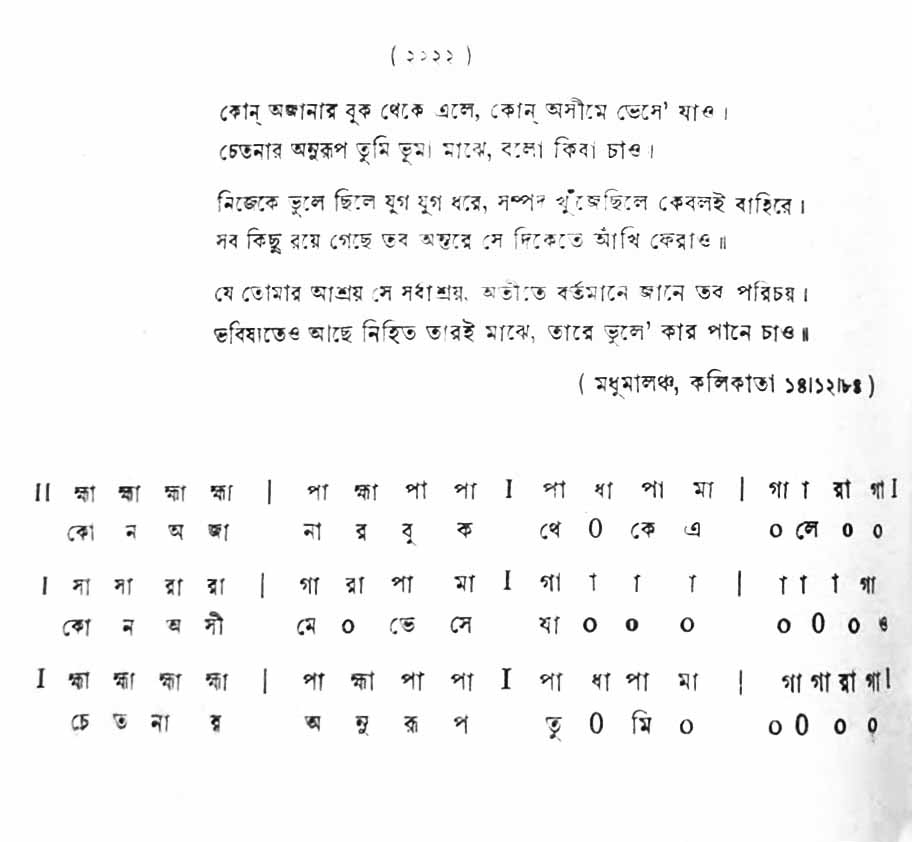 ( ২০২২ )
কোন্ অজানার বুক থেকে এলে, কোন্ অসীমে ভেসে' যাও ।
চেতনার অনুরূপ তুমি ভূমা মাঝে, বলো কিবা চাও ।
নিজেকে ভুলে ছিলে যুগ যুগ ধরে, সম্পদ খুঁজেছিলে কেবলই বাহিরে ।
সব কিছু রয়ে গেছে তব অন্তরে সে দিকেতে আঁখি ফেরাও ॥
যে তোমার আশ্রয় সে সর্বাশ্রয়, অতীতে বর্তমানে জানে তব পরিচয় ।
ভবিষ্যতেও আছে নিহিত তারই মাঝে, তারে ভুলে' কার পানে চাও ॥
( মধুমালঞ্চ, কলিকাতা ১৪।১২।৮৪ )
II হ্মা হ্মা হ্মা হ্মা | পা হ্মা পা পা I পা ধা পা মা | গা া রা গা I
কো ন অ জা না র বু ক থে 0 কে এ ০ লে ০ ০
I সা সা রা রা | গা রা পা মা I গা া া া | া া া গা
কো ন অ সী মে ০ ভে সে যা ০ ০ ০ ০ 0 ০ ও
I হ্মা হ্মা হ্মা হ্মা | পা হ্মা পা পা I পা ধা পা মা | গা গা রা গা I
চে ত না র অ নু রূ প তু 0 মি ০ ০ 0 ০ ০